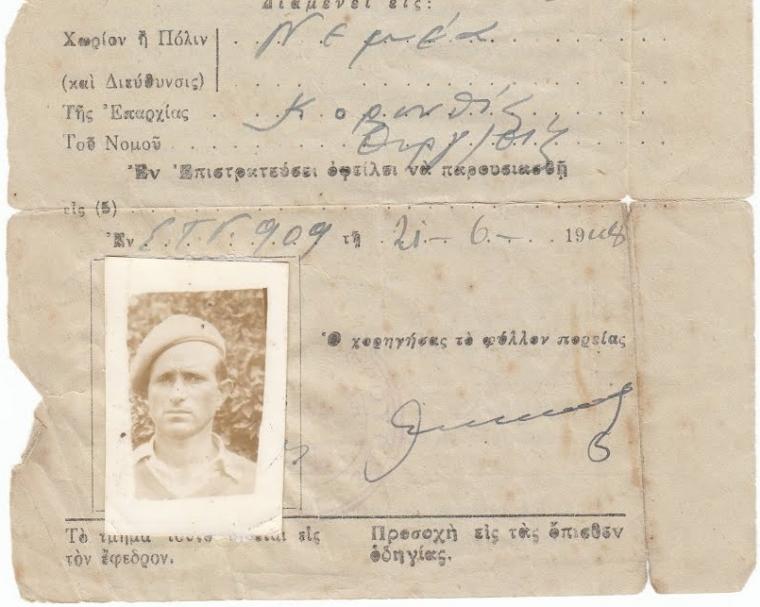 Διαμένει εἰς:
Χωρίον ἢ Πόλιν Νεμέα
(καὶ Διεύθυνσις)
Τῆς Ἐπαρχίας Κορινθίας
Τοῦ Νομοῦ
Ἐν Ἐπιστρατεύσει ὀφείλει νὰ παρουσιασθῇ
εἰς (5)
Ἐν Σ.Τ.Γ. 909 τῇ 21-6- 1948
Ὁ χορηγήσας τὸ φύλλον πορείας
Τὸ τμῆμα τοῦτο δίδεται εἰς
τὸν ἔφεδρον.
Προσοχὴ εἰς τὰς ὄπισθεν
ὁδηγίας.